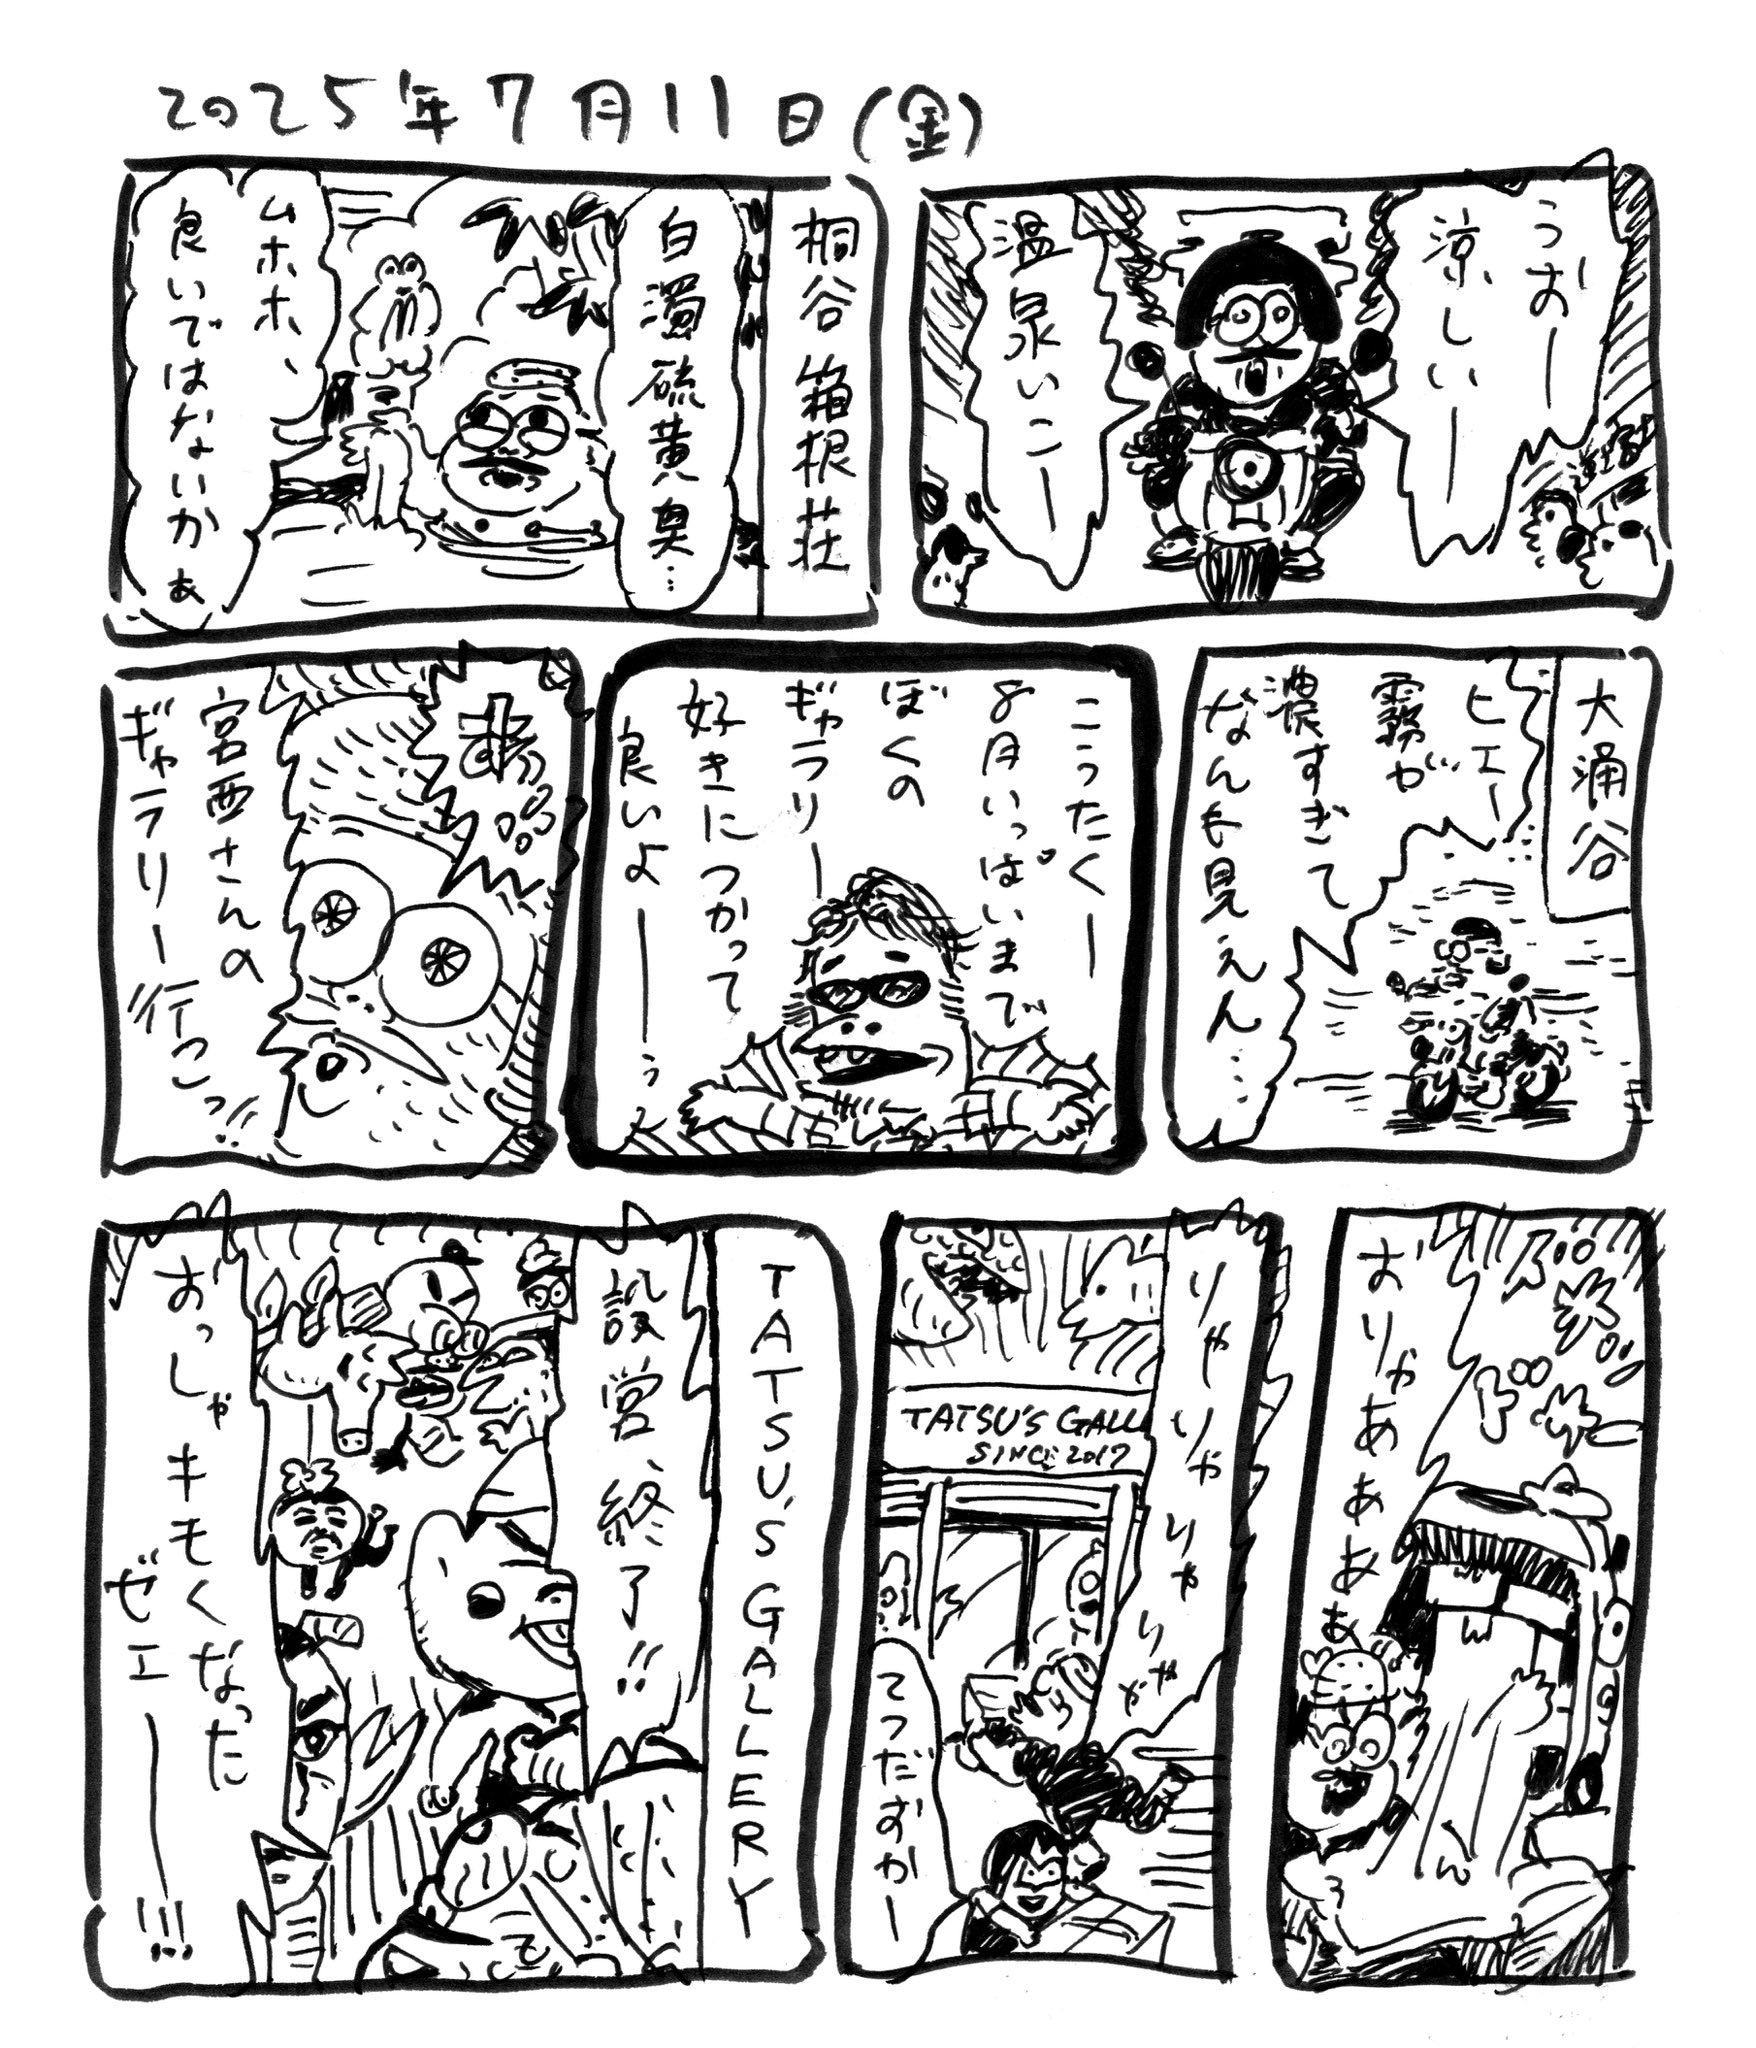 2025年7月11日(金)
うおー
涼しいー
温泉いこー
桐谷箱根荘
白濁硫黄臭…
ムホホ、
良いではないかぁ
大涌谷
ヒエー
霧が
濃すぎて
なんも見えん…
こうたくー
8月いっぱいまで
ぼくの
ギャラリー
好きにつかって
良いよーぅ
宮西さんの
ギャラリー行こっ!!
おりゃあぁあぁ
りゃりゃりゃりゃ
TATSU'S GALL
SINCE 2017
てつだおかー
TATSU'S GALLERY
設営、終了!!
おっしゃ
キモくなった
ゼエー!!!